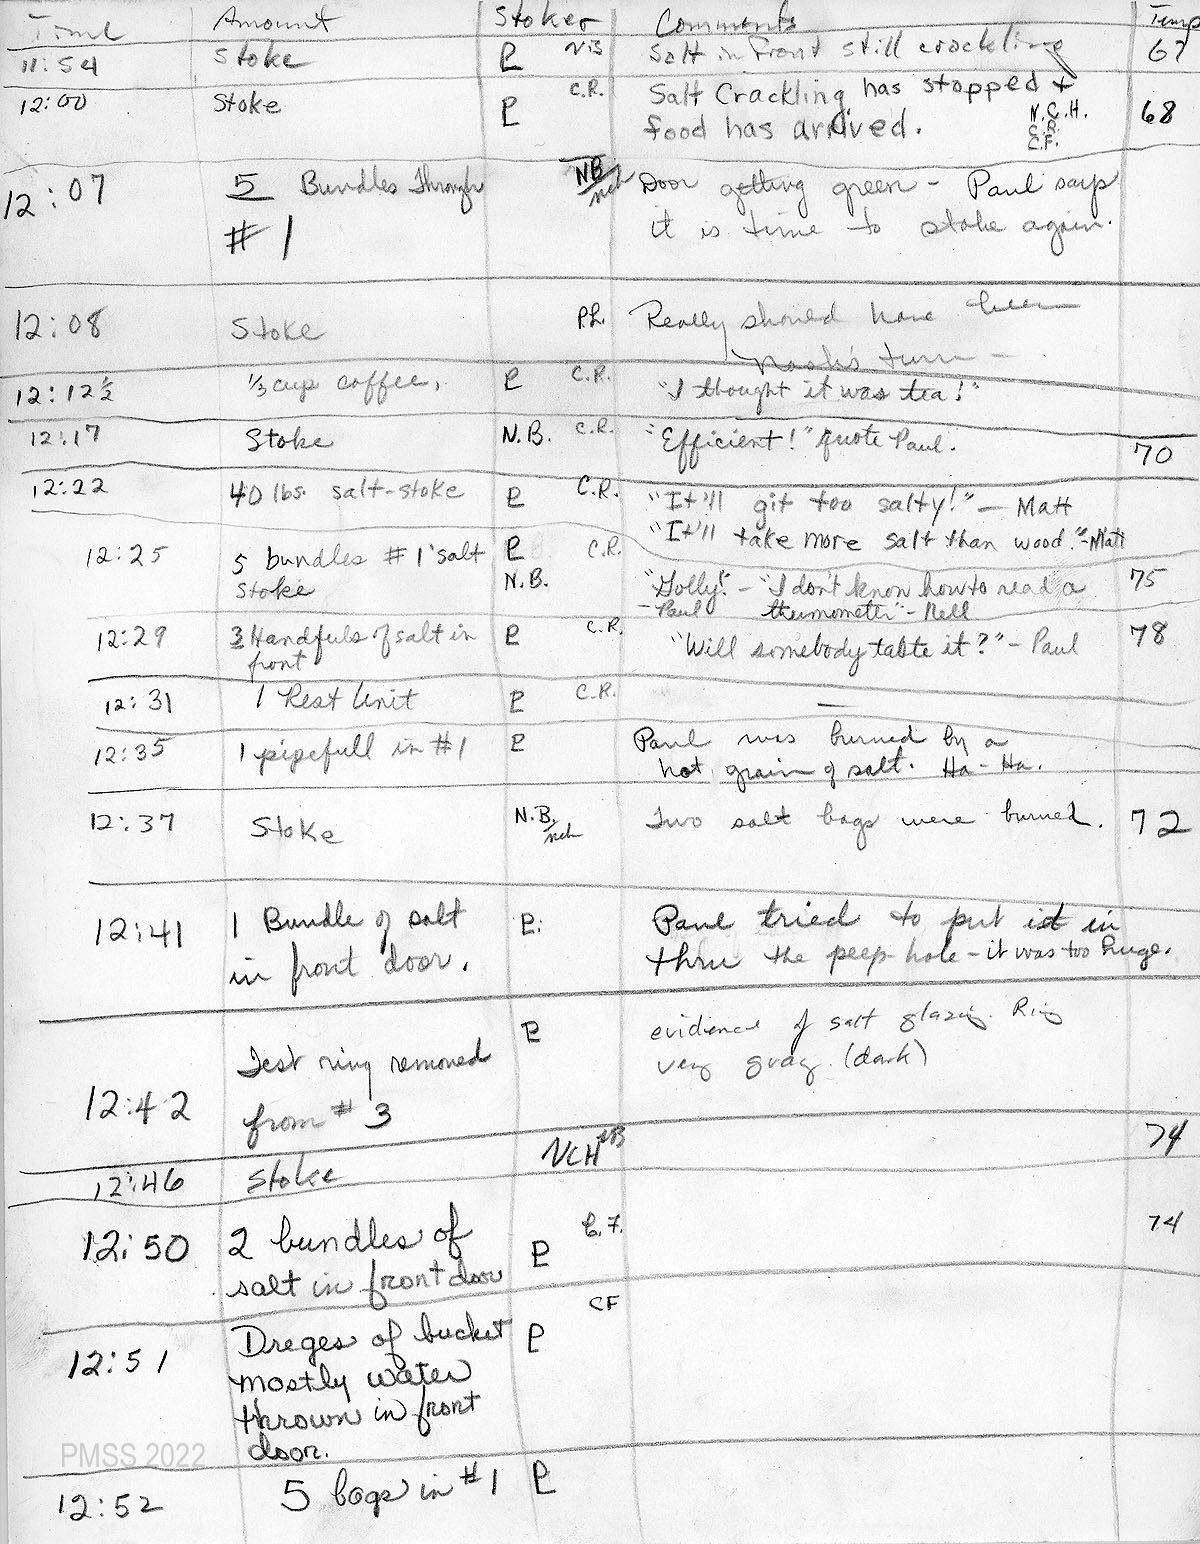 Time Amount Stoker Comments Temp
11:54 Stoke P Salt in front still crackling 67
12:00 Stoke P C.R. Salt Crackling has stopped +
food has arrived. N.C.H. C.R. C.F. 68
12:07 5 Bundles Through NB/nch Door getting green - Paul says
#1 it is time to stoke again.
12:08 Stoke P.L. Really should have been
Nash's turn -
12:12½ ⅓ cup coffee, P C.R. "I thought it was tea!"
12:17 Stoke N.B. C.R. "Efficient!" quote Paul. 70
12:22 40 lbs. salt-stoke P C.R. "It'll git too salty!" - Matt
"It'll take more salt than wood."-Matt
12:25 5 bundles #1 salt P C.R.
Stoke N.B. "Golly!" - "I don't know how to read a 75
- Paul thermometer" - Nell
12:29 3 Handfuls of salt in P C.R. "Will somebody taste it?" - Paul 78
front
12:31 1 Rest Unit P C.R. —
12:35 1 pipefull in #1 P Paul was burned by a
hot grain of salt. Ha-Ha.
12:37 Stoke N.B./nch Two salt bags were burned. 72
12:41 1 Bundle of salt P. Paul tried to put it in
in front door. thru the peep-hole - it was too huge.
12:42 Test ring removed P evidience of salt glazing. Ring
from #3 very gray. (dark)
12:46 Stoke NCH NB 74
12:50 2 bundles of P C.F. 74
salt in front door
12:51 Dreges of bucket P CF
mostly water
thrown in front
door.
PMSS 2022
12:52 5 bags in #1 P